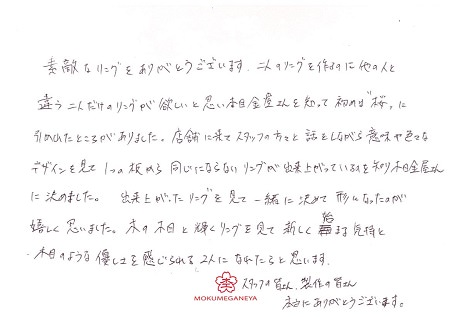 素敵なリングをありがとうございます。二人のリングを作るのに他の人と
違う二人だけのリングが欲しいと思い木目金屋さんを知って初めは"桜"に
引かれたところがありました。店舗に来てスタッフの方々と話をしながら意味や色々な
デザインを見て1つの板から同じにならないリングが出来上がっているのを知り木目金屋さん
に決めました。出来上がったリングを見て一緒に決めて形になったのが
嬉しく思いました。木の木目と輝くリングを見て新しく始まる気持と
木目のような優しさを感じられる2人になれたらと思います。
スタッフの皆さん、製作の皆さん
MOKUMEGANEYA
本当にありがとうございます。